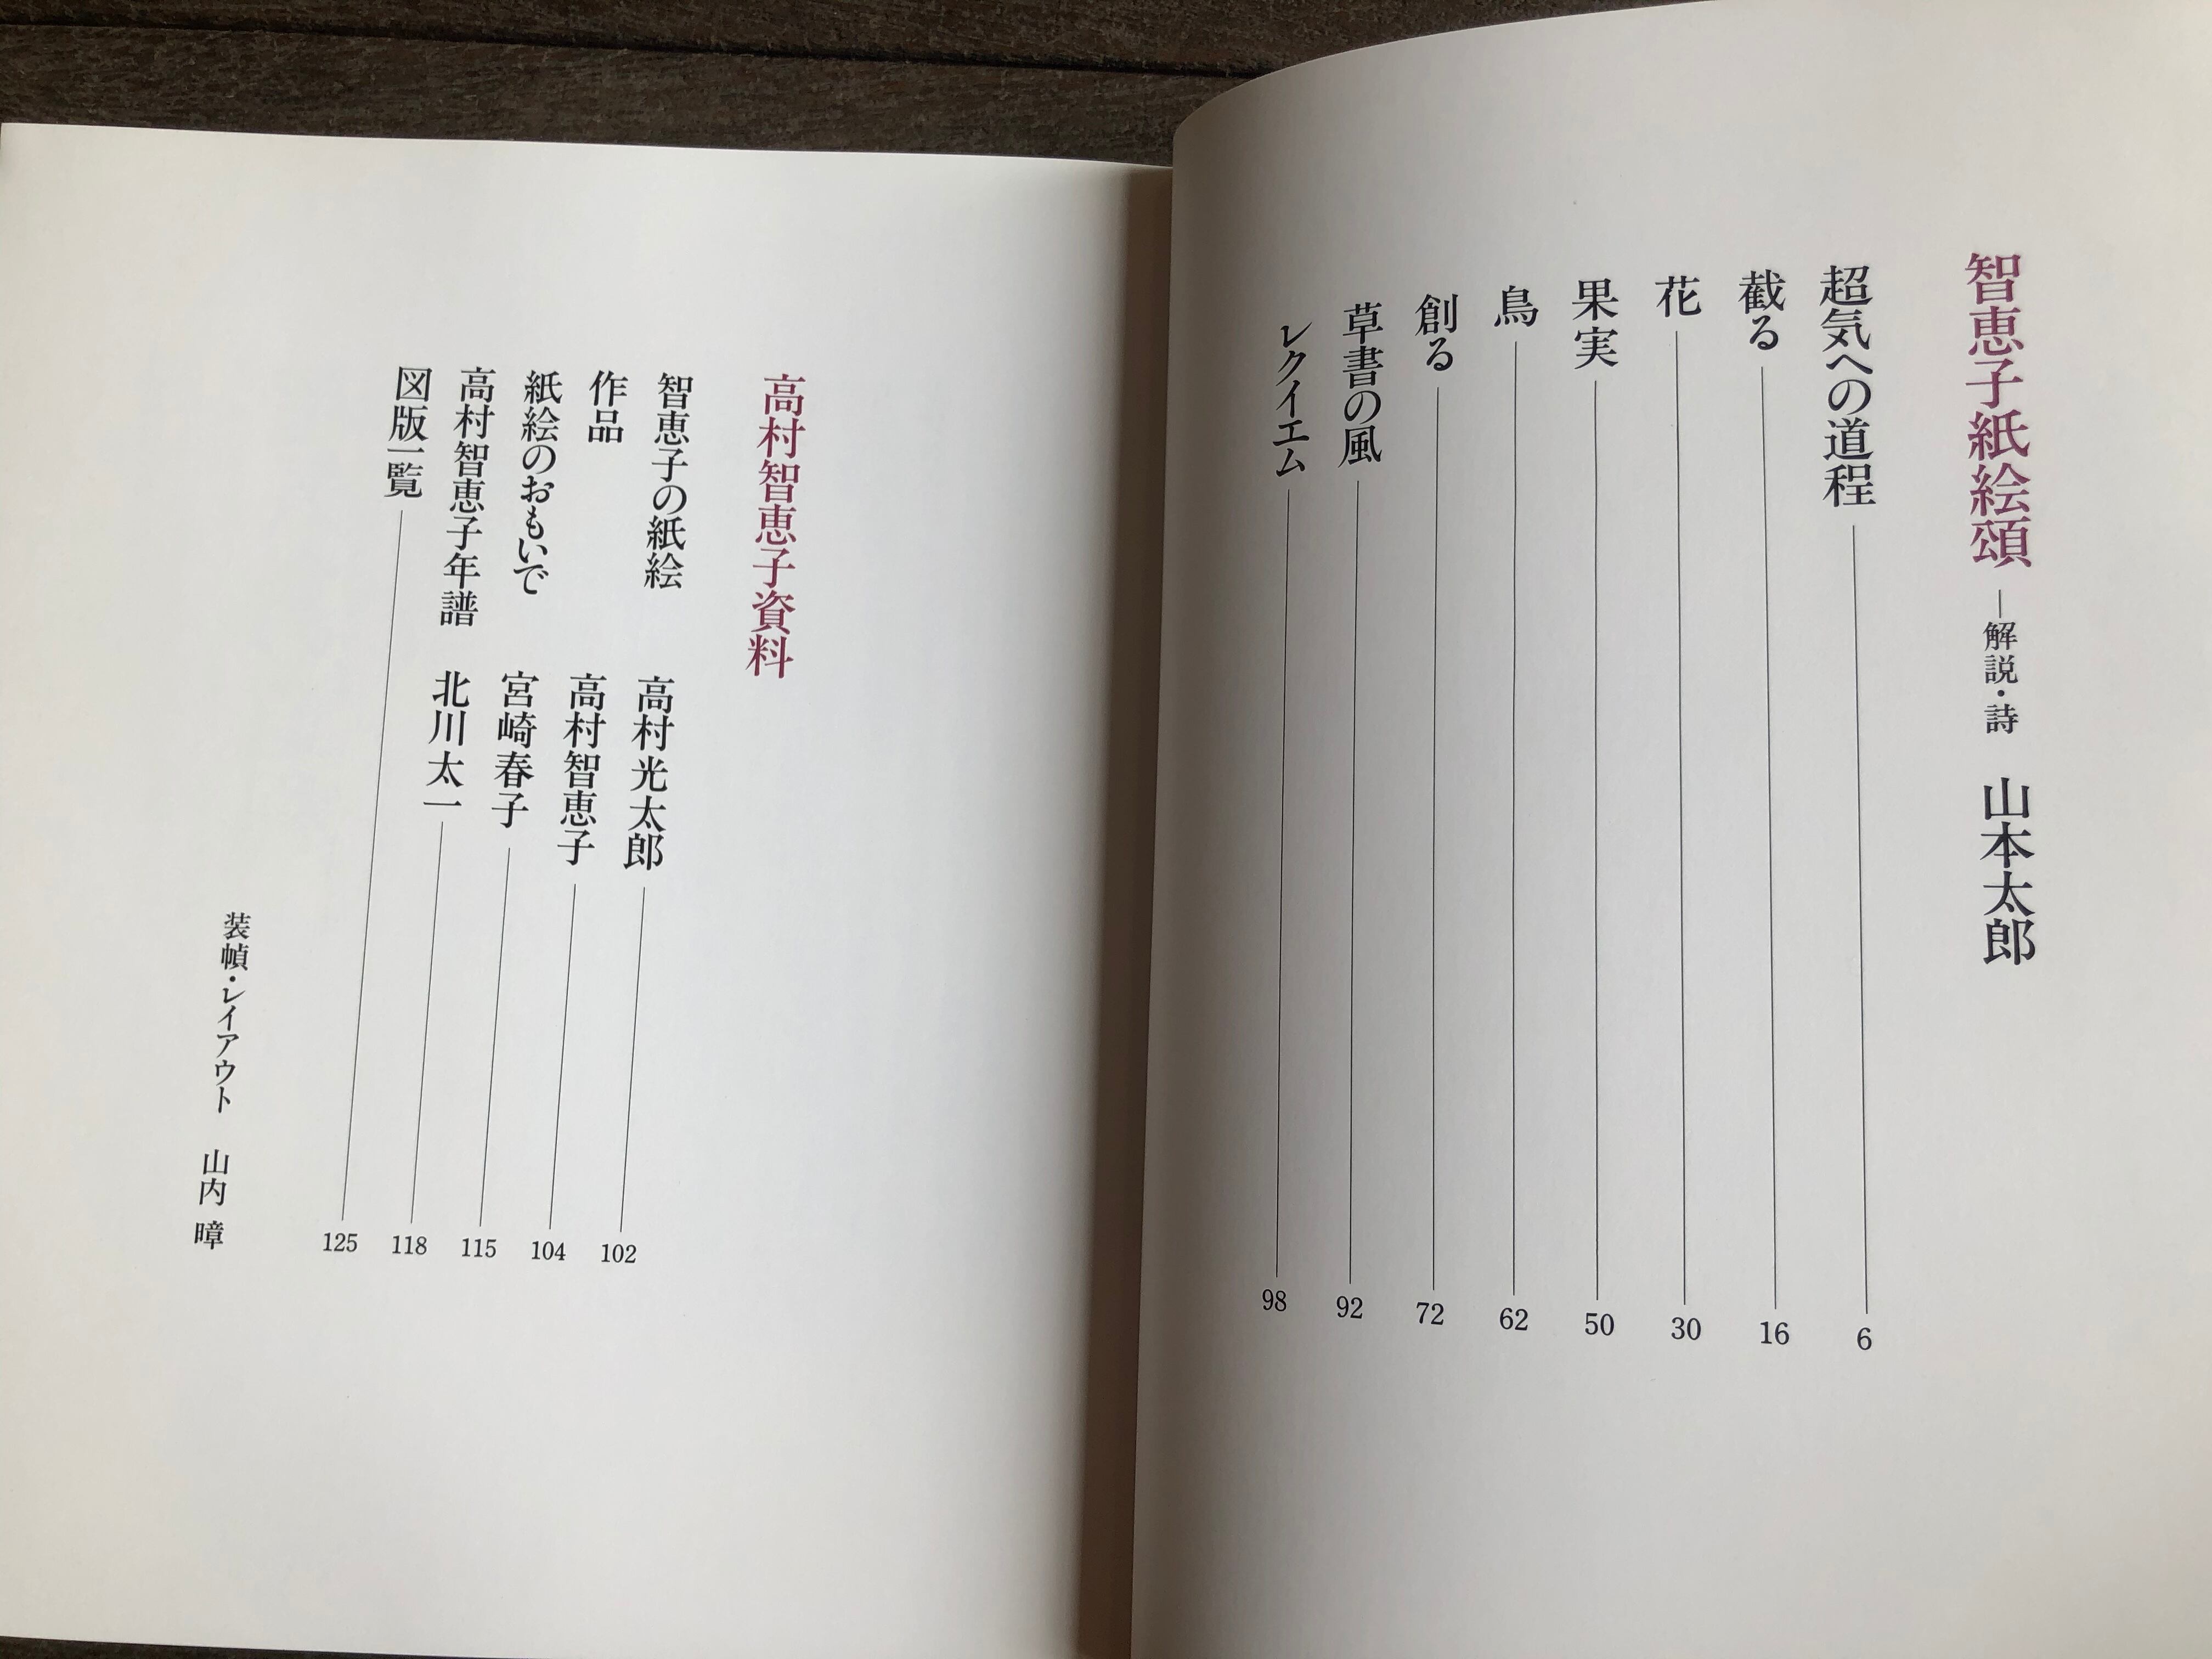 智恵子紙絵頌―解説・詩 山本太郎
超気への道程 6
截る 16
花 30
果実 50
鳥 62
創る 72
草書の風 92
レクイエム 98
高村智恵子資料
智恵子の紙絵 高村光太郎 102
作品 高村智恵子 104
紙絵のおもいで 宮崎春子 115
高村智恵子年譜 北川太一 118
図版一覧 125
装幀・レイアウト 山内 暲